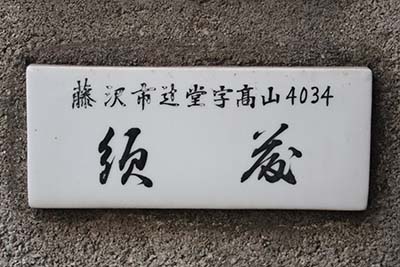 藤沢市辻堂字高山4034
須藤